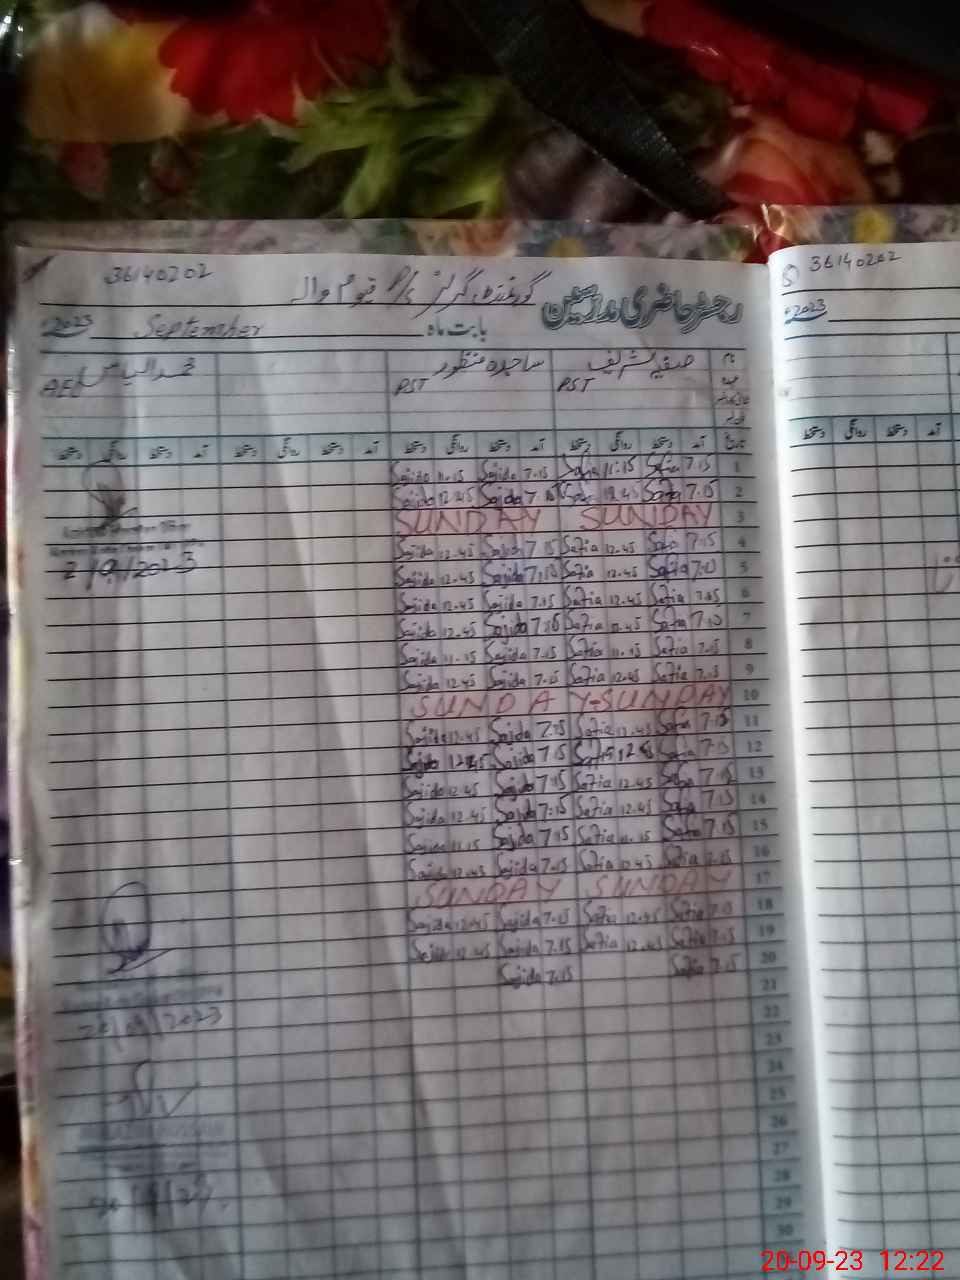 36140202
گورنمنٹ گرلز P/S قیوم والہ
رجسٹر حاضری مدرسین
بابت ماہ September 2023
نام صفیہ شریف ساجدہ منظور محمد الیاس
عہدہ PST PST AEO
تاریخ آمد دستخط روانگی دستخط آمد دستخط روانگی دستخط آمد دستخط روانگی دستخط آمد دستخط روانگی دستخط
1 7.15 Safia 11.15 Safia 7.15 Sajida 11.15 Sajida
2 7.15 Safia 12.45 7.15 Sajida 12.45 Sajida
3 SUNDAY SUNDAY
4 7.15 Safia 12.45 Safia 7.15 Sajida 12.45 Sajida
5 7.15 Safia 12.45 Safia 7.15 Sajida 12.45 Sajida
6 7.15 Safia 12.45 Safia 7.15 Sajida 12.45 Sajida
7 7.15 Safia 12.45 Safia 7.15 Sajida 12.45 Sajida
8 7.15 Safia 11.15 Safia 7.15 Sajida 11.15 Sajida
9 7.15 Safia 12.45 Safia 7.15 Sajida 12.45 Sajida
10 SUNDAY-SUNDAY
11 7.15 Safia 12.45 Safia 7.15 Sajida 12.45 Sajida
12 7.15 Safia 12.45 Safia 7.15 Sajida 12.45 Sajida
13 7.15 Safia 12.45 Safia 7.15 Sajida 12.45 Sajida
14 7.15 Safia 12.45 Safia 7.15 Sajida 12.45 Sajida
15 7.15 Safia 11.15 Safia 7.15 Sajida 11.15 Sajida
16 7.15 Safia 12.45 Safia 7.15 Sajida 12.45 Sajida
17 SUNDAY SUNDAY
18 7.15 Safia 12.45 Safia 7.15 Sajida 12.45 Sajida
19 7.15 Safia 12.45 Safia 7.15 Sajida 12.45 Sajida
20 7.15 Safia 7.15 Sajida
21
22
23
24
25
26
27
28
29
30
2/9/2023
20/09/2023
36140202
2023
آمد دستخط روانگی دستخط
20-09-23 12:22